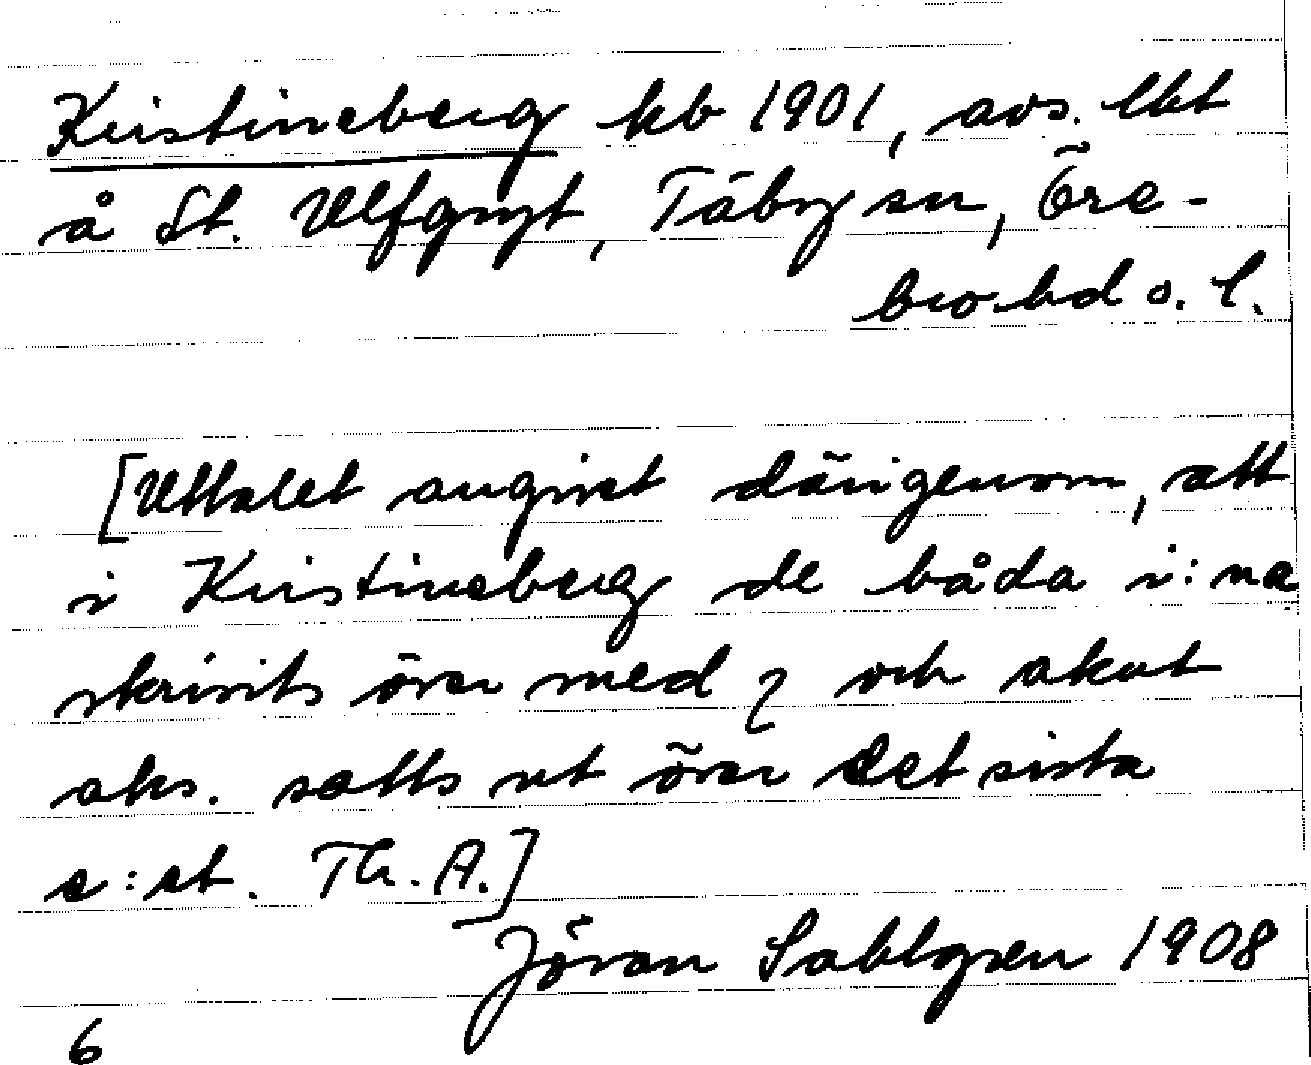 Kristineberg kb 1901, avs. lht
å St. Ulfgryt, Täby sn, Öre-
bro hd o. l.
[Uttalet angivet därigenom, att
i Kristineberg de båda i:na
skrivits över med ɿ och akut
aks. satts ut över det sista
e:et. Th. A.]
Jöran Sahlgren 1908
6